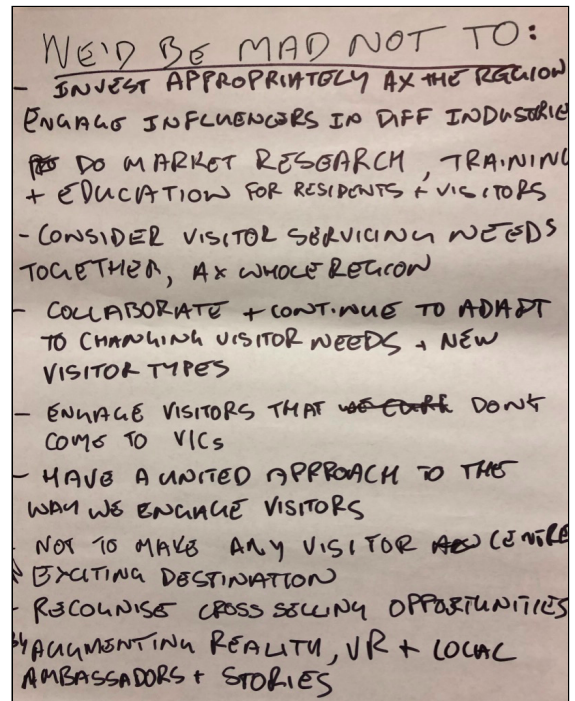 WE'D BE MAD NOT TO:
- INVEST APPROPRIATELY AX THE REGION
ENGAGE INFLUENCERS IN DIFF INDUSTRIE
DO MARKET RESEARCH, TRAINING
+ EDUCATION FOR RESIDENTS + VISITORS
- CONSIDER VISITOR SERVICING NEEDS
TOGETHER, AX WHOLE REGION
- COLLABORATE + CONTINUE TO ADAPT
TO CHANGING VISITOR NEEDS + NEW
VISITOR TYPES
- ENGAGE VISITORS THAT DONT
COME TO VICs
- HAVE A UNITED APPROACH TO THE
WAY WE ENGAGE VISITORS
- NOT TO MAKE ANY VISITOR CENTRE
EXCITING DESTINATION
- RECOGNISE CROSS SELLING OPPORTUNITIES
BY AUGMENTING REALITY, VR + LOCAL
AMBASSADORS + STORIES